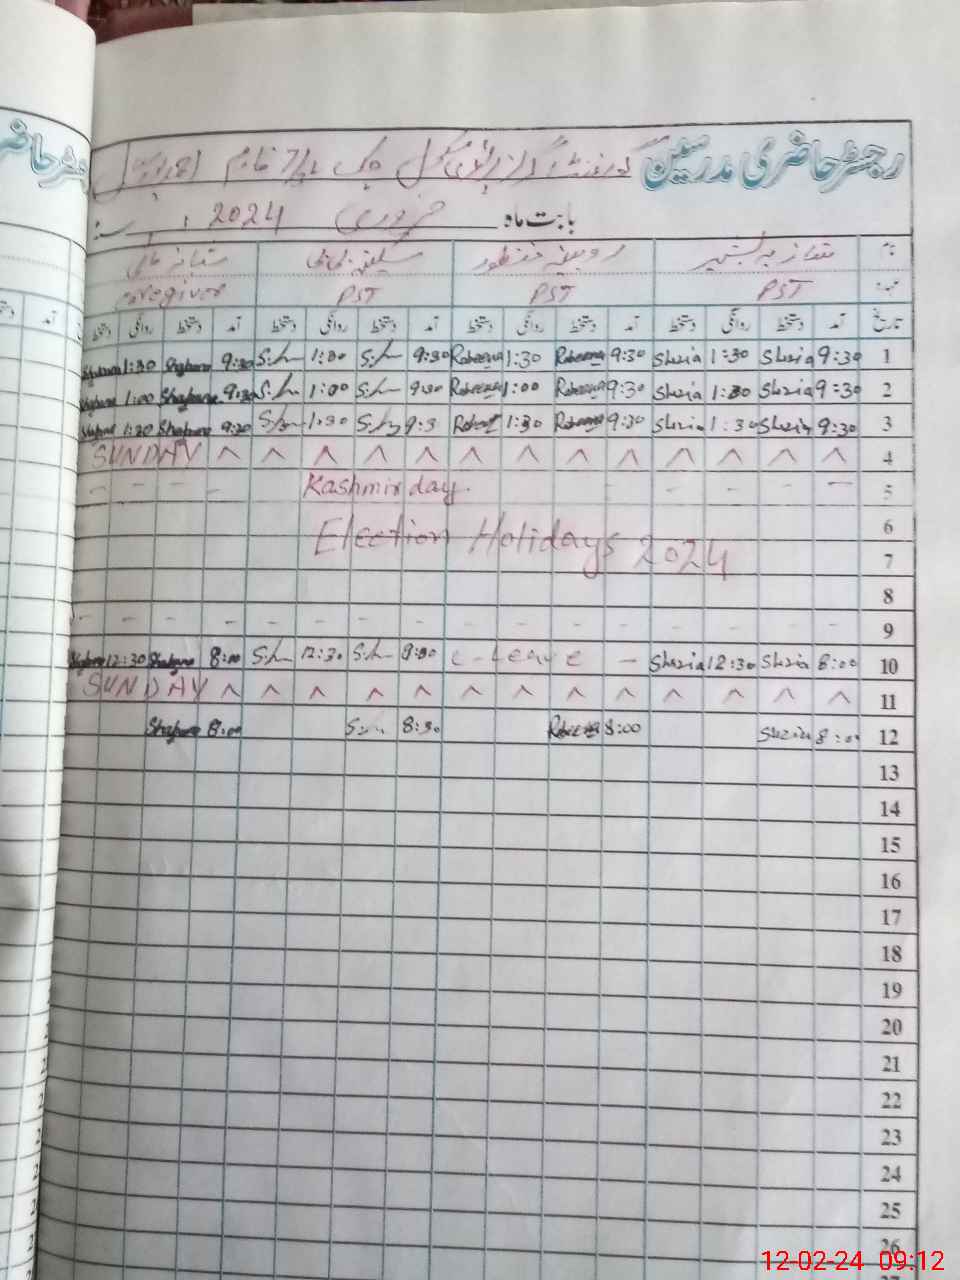 رجسٹر حاضری مدرسین گورنمنٹ گرلز پرائمری سکول چک
بابت ماہ فروری 2024ء
نام شازیہ بشیر روبینہ منظور سکینہ بی بی شبانہ
عہدہ PST PST PST Caregiver
تاریخ آمد دستخط روانگی دستخط آمد دستخط روانگی دستخط آمد دستخط روانگی دستخط آمد دستخط روانگی دستخط
1 9:30 Shazia 1:30 Shazia 9:30 Rabeena 1:30 Rabeena 9:30 1:30 9:30 Shabana 1:30 Shabana
2 9:30 Shazia 1:30 Shazia 9:30 Rabeena 1:00 Rabeena 9:30 1:00 9:30 Shabana 1:00 Shabana
3 9:30 Shazia 1:30 Shazia 9:30 Rabeena 1:30 9:3 1:30 9:30 Shabana 1:30
4 SUNDAY
5 Kashmir day.
6
Election Holidays 2024
7
8
9
10 8:00 Shazia 12:30 Shazia – C-Leave 8:00 12:30 8:00 Shabana 12:30 Shabana
11 SUNDAY
12 8:00 Shazia 8:00 Rabeena 8:30 8:00 Shabana
13
14
15
16
17
18
19
20
21
22
23
24
25
26
12-02-24 09:12